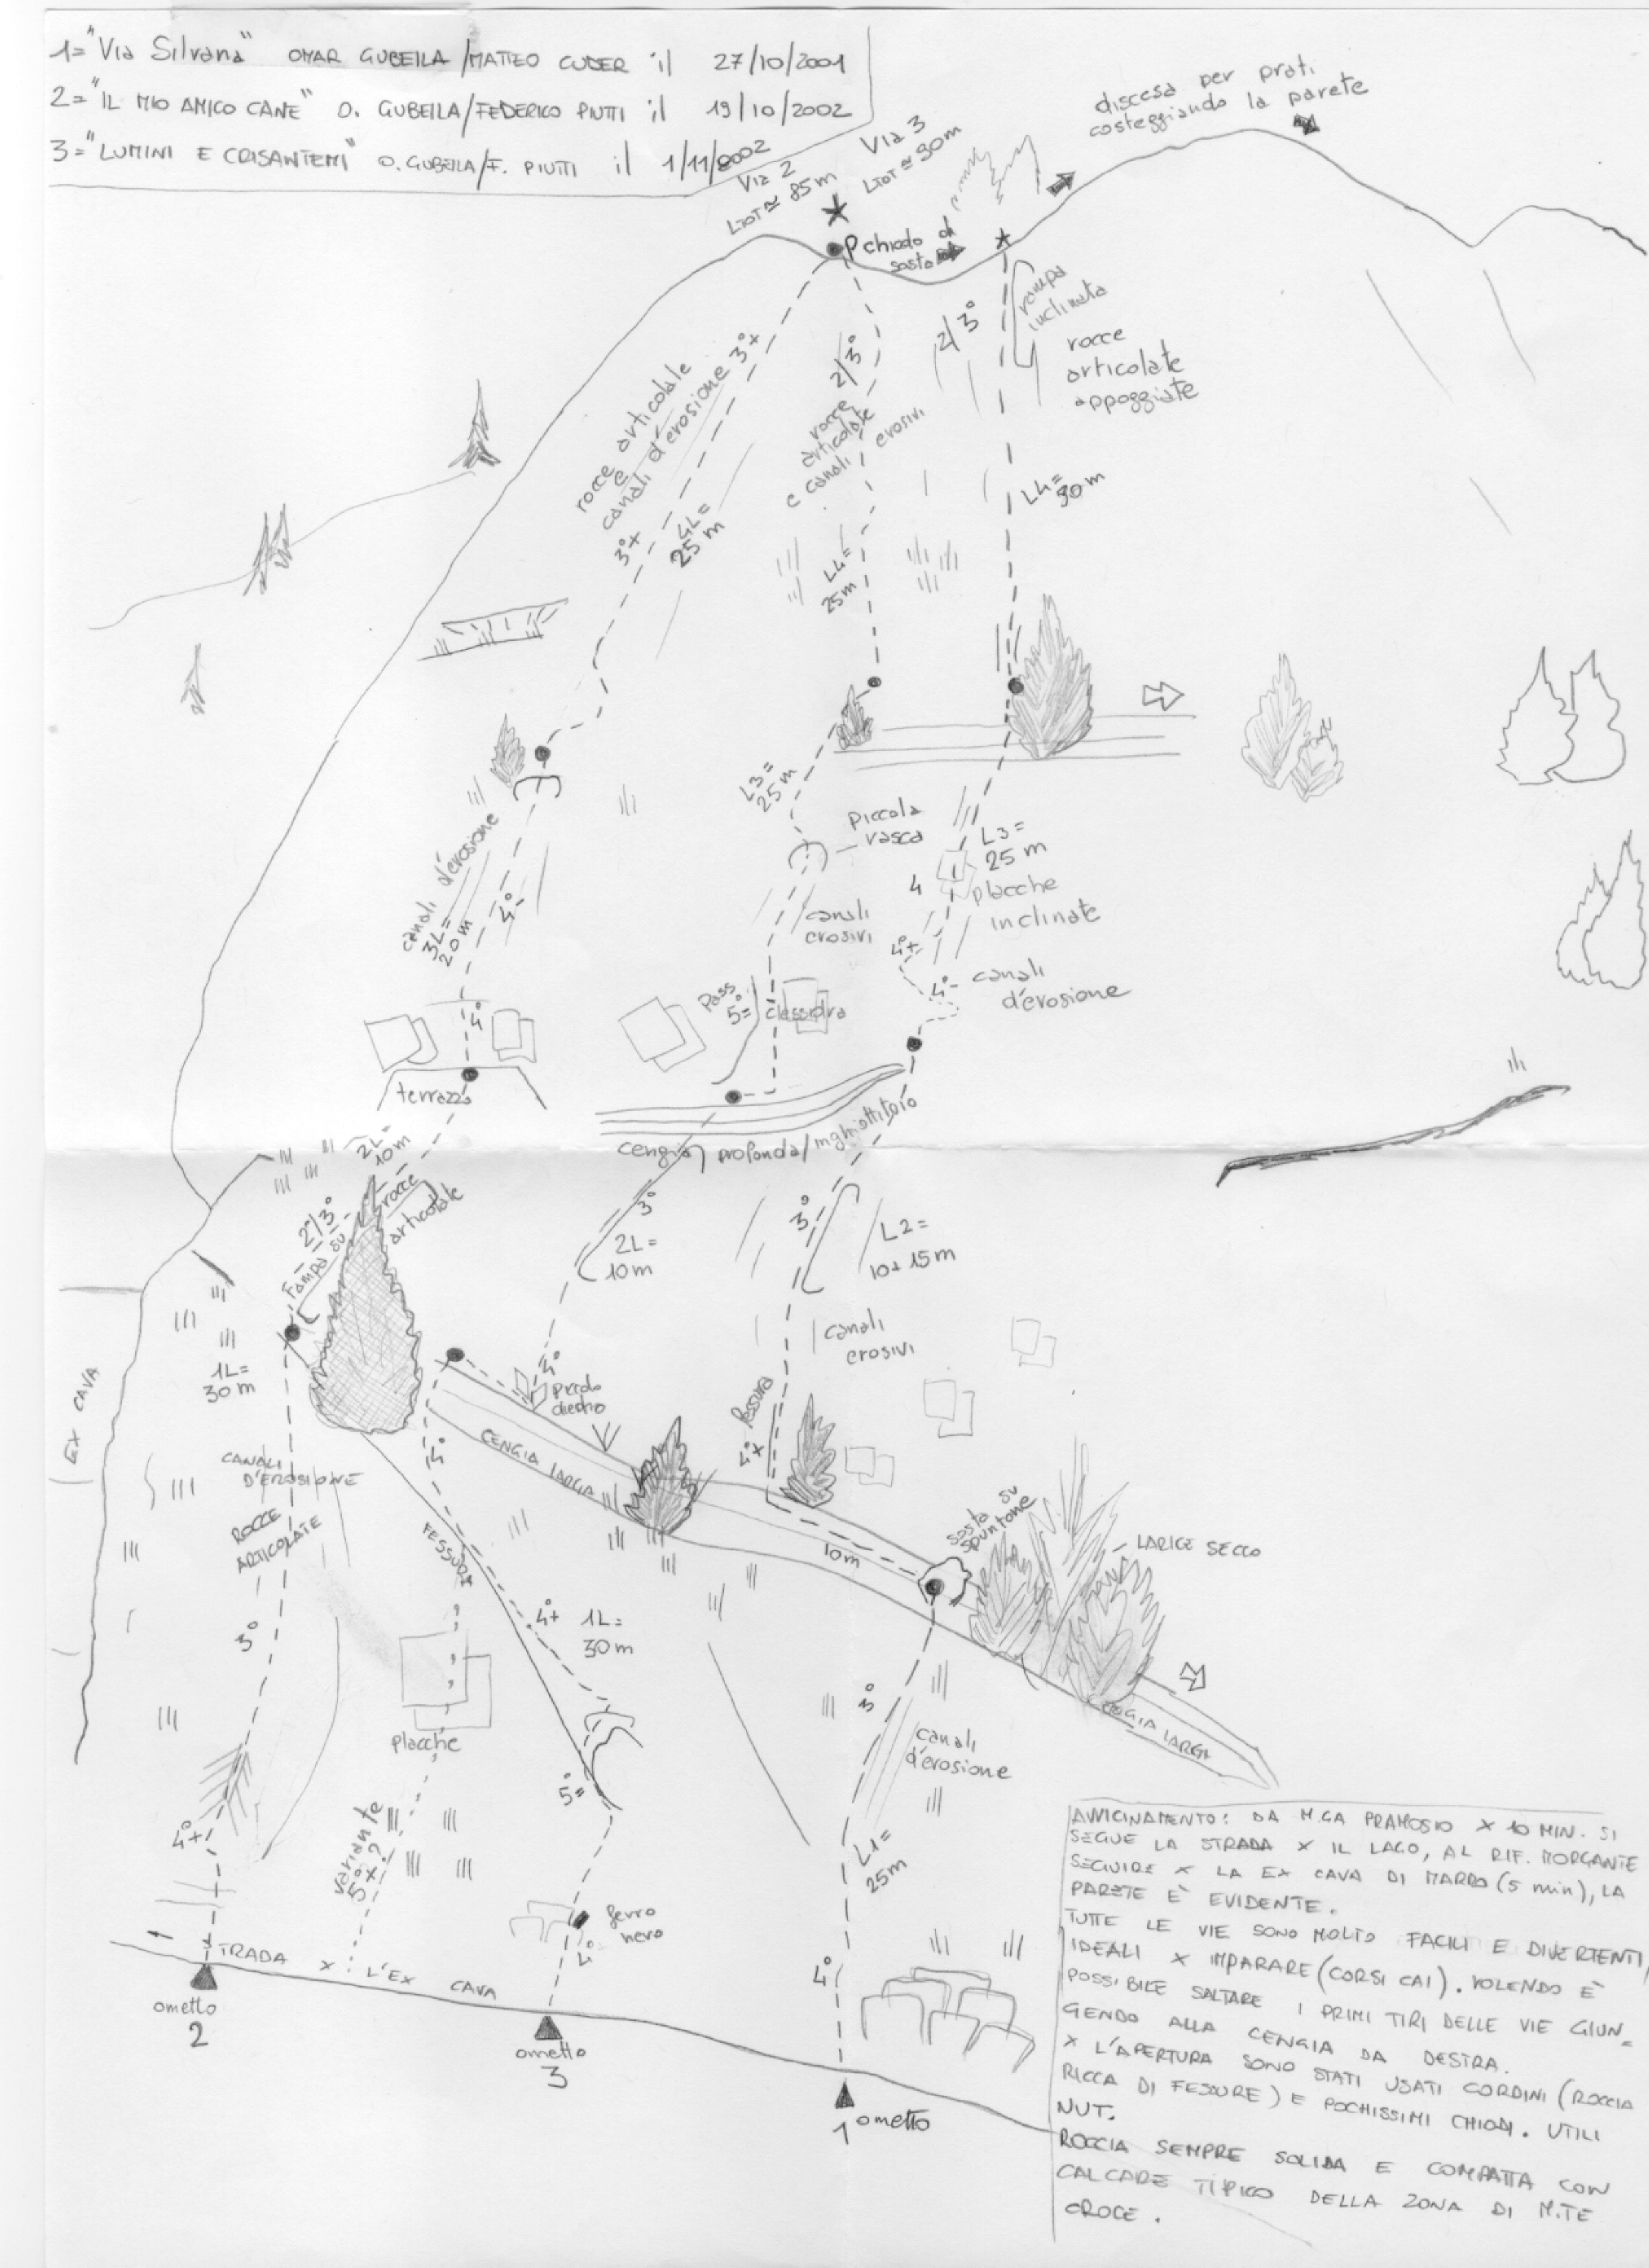 1="Via Silvana" OMAR GUBEILA/MATTEO CUDER il 27/10/2001
2="IL MIO AMICO CANE" O. GUBEILA/FEDERICO PIUTTI il 19/10/2002
3="LUMINI E CRISANTEMI" O. GUBEILA/F. PIUTTI il 1/11/2002
discesa per prati
costeggiando la parete
Via 2
LTOT ≃ 85m
Via 3
LTOT ≃ 90m
chiodo di
sosta
rampa
inclinata
2/3°
rocce
articolate
appoggiate
rocce articolate
e
canali d'erosione 3°+
3°+
4L=
25m
2/3°
rocce
articolate
e canali erosivi
L4=
25m
L4=
30m
L3=
25m
piccola
vasca
canali
erosivi
L3=
25m
4
placche
inclinate
4°+
4°-
canali
d'erosione
canali d'erosione
3L=
20m
4°-
4°
terrazzo
Pass.
5°=
clessidra
cengia profonda/inghiottitoio
2L=
10m
2°/3°
rampa su
rocce
articolate
3°
2L=
10m
3°
L2=
10+15m
canali
erosivi
EX CAVA
1L=
30m
4°
piccolo
diedro
4°+ fessura
4°
CENGIA LARGA
CANALI
D'EROSIONE
ROCCE
ARTICOLATE
FESSURA
10m
sosta su
spuntone
LARICE SECCO
3°
4°+
1L=
30m
placche
5°=
3°
canali
d'erosione
CENGIA LARGA
4°+
variante
5°+?
L1=
25m
ferro
nero
4°
4°
STRADA X L'EX CAVA
ometto
2
ometto
3
1 ometto
AVVICINAMENTO: DA M.GA PRAMOSIO X 10 MIN. SI
SEGUE LA STRADA X IL LAGO, AL RIF. MORGANTE
SEGUIRE X LA EX CAVA DI MARMO (5 min), LA
PARETE E' EVIDENTE.
TUTTE LE VIE SONO MOLTO FACILI E DIVERTENTI,
IDEALI X IMPARARE (CORSI CAI). VOLENDO È
POSSIBILE SALTARE I PRIMI TIRI DELLE VIE GIUN=
GENDO ALLA CENGIA DA DESTRA.
X L'APERTURA SONO STATI USATI CORDINI (ROCCIA
RICCA DI FESSURE) E POCHISSIMI CHIODI. UTILI
NUT.
ROCCIA SEMPRE SOLIDA E COMPATTA CON
CALCARE TIPICO DELLA ZONA DI M.TE
CROCE.